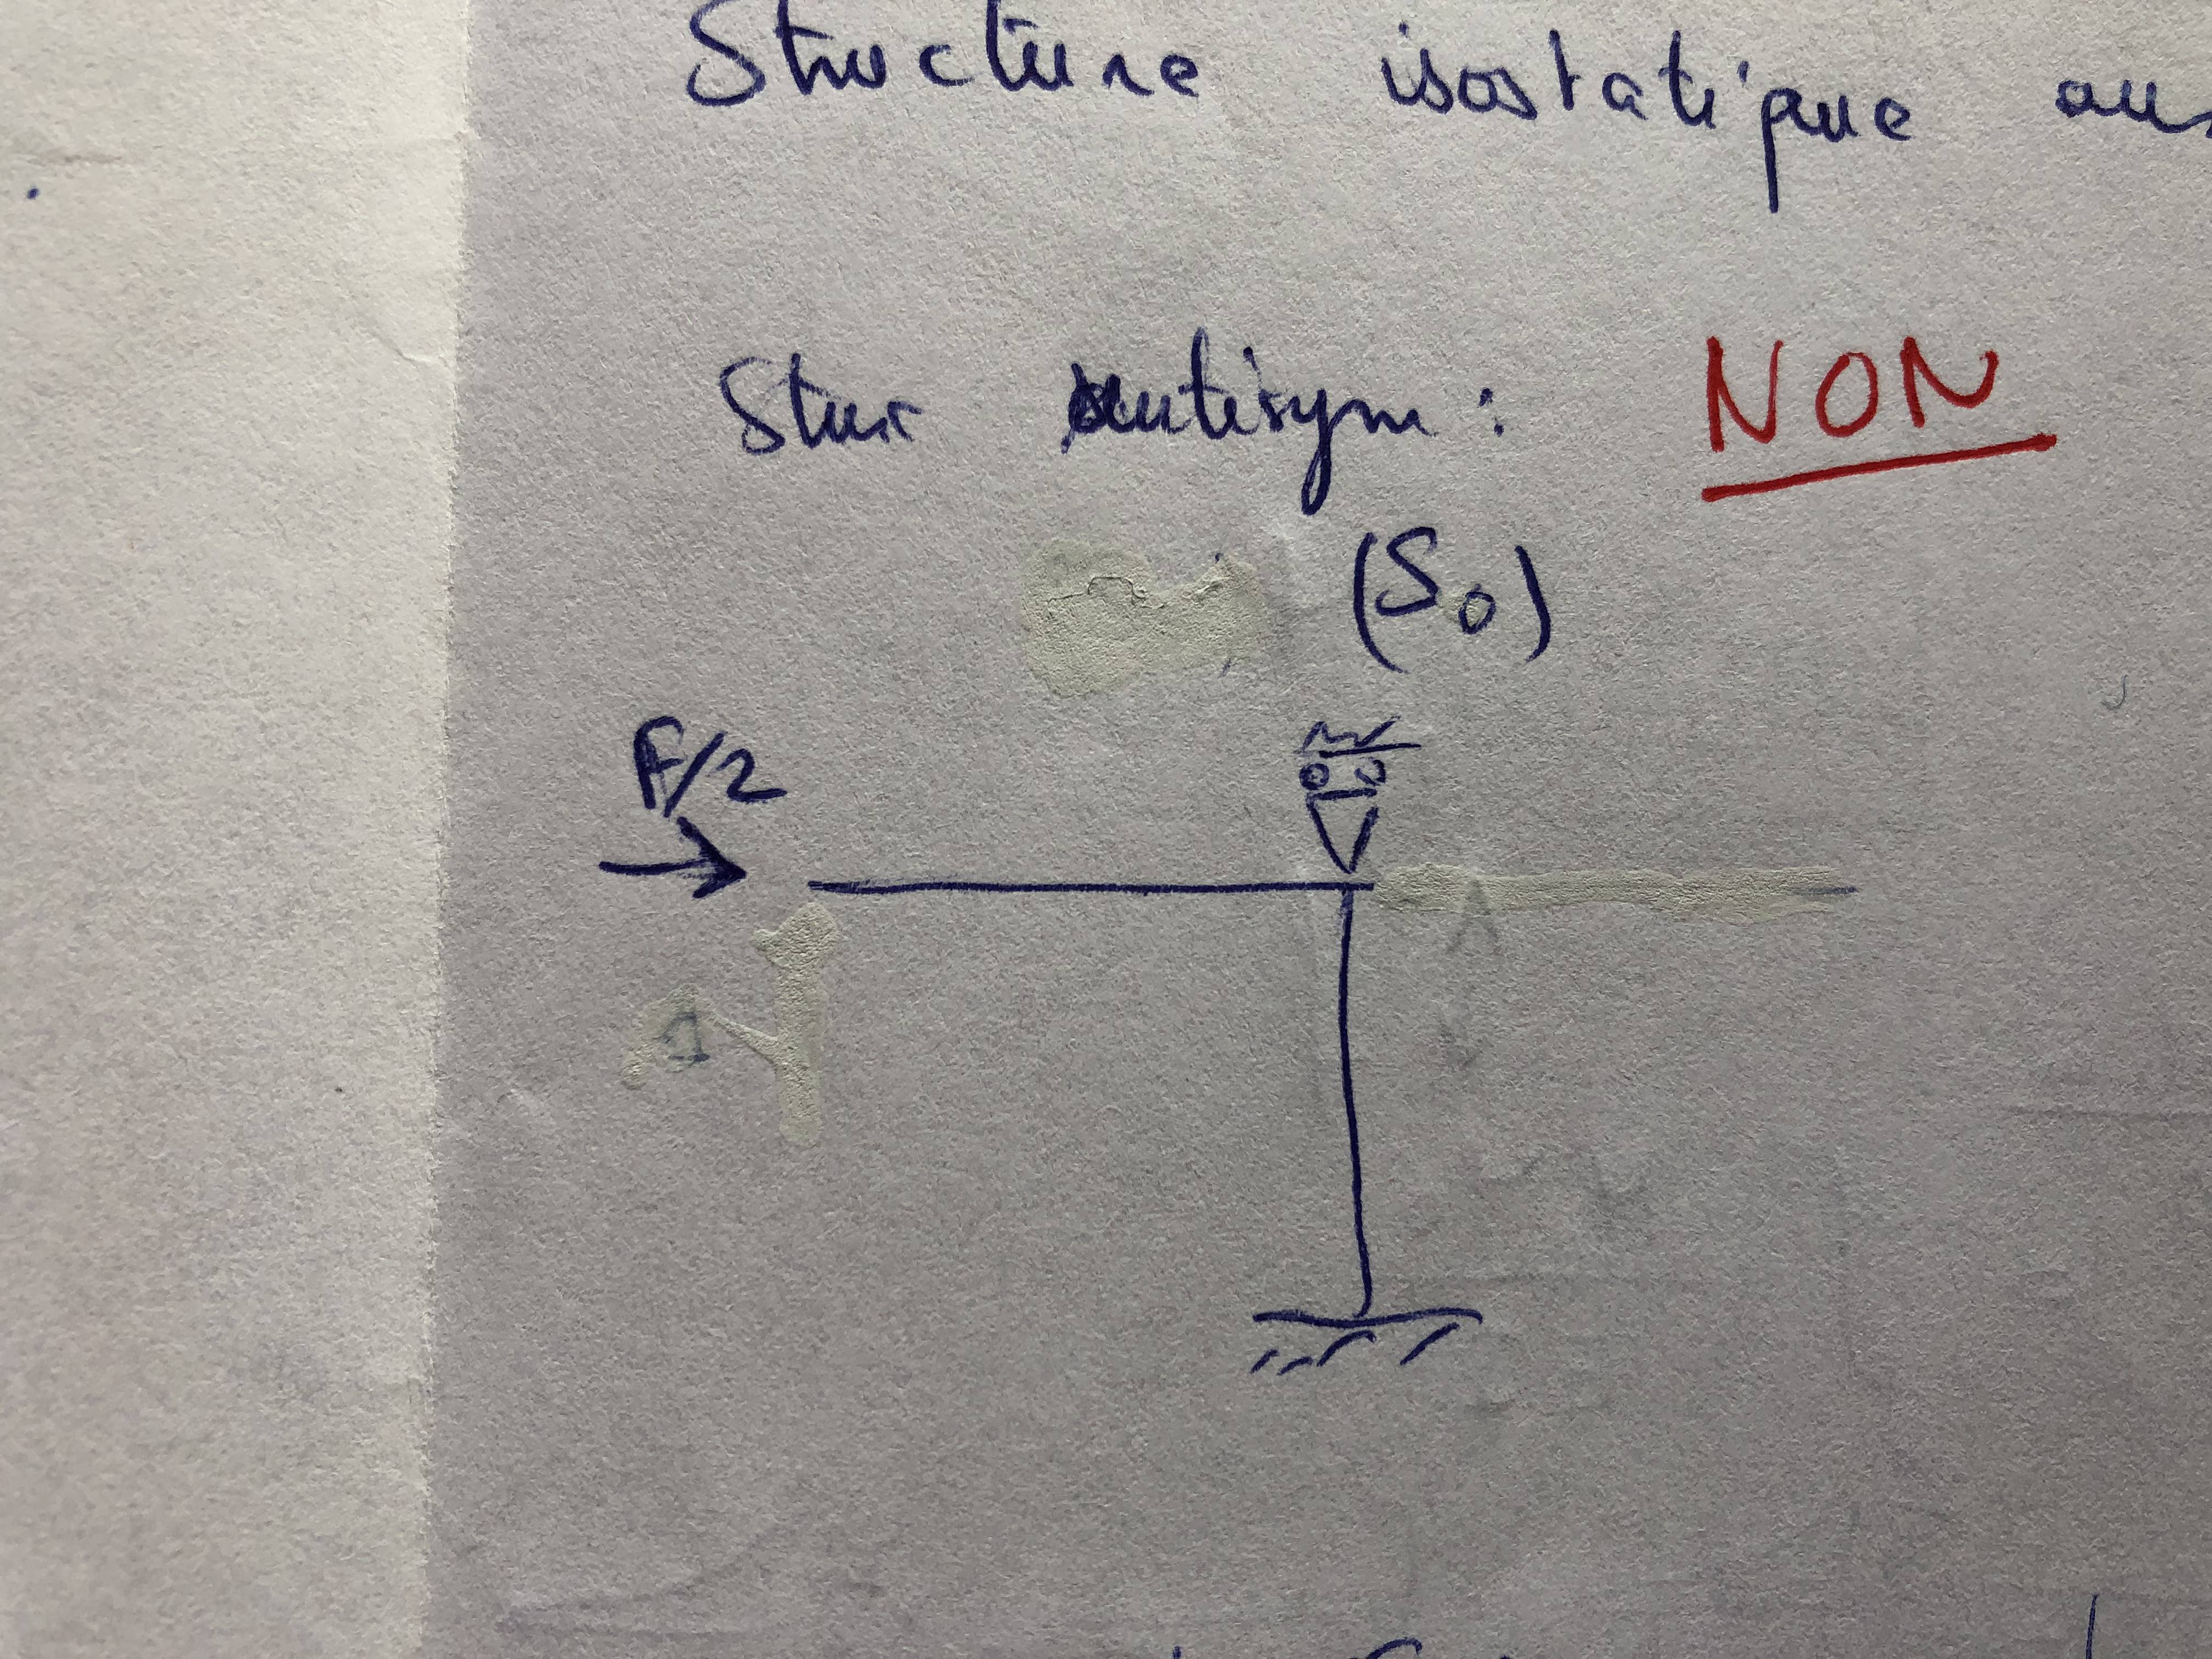 Structure isostatique au
Struc antisym : NON
(S0)
F/2